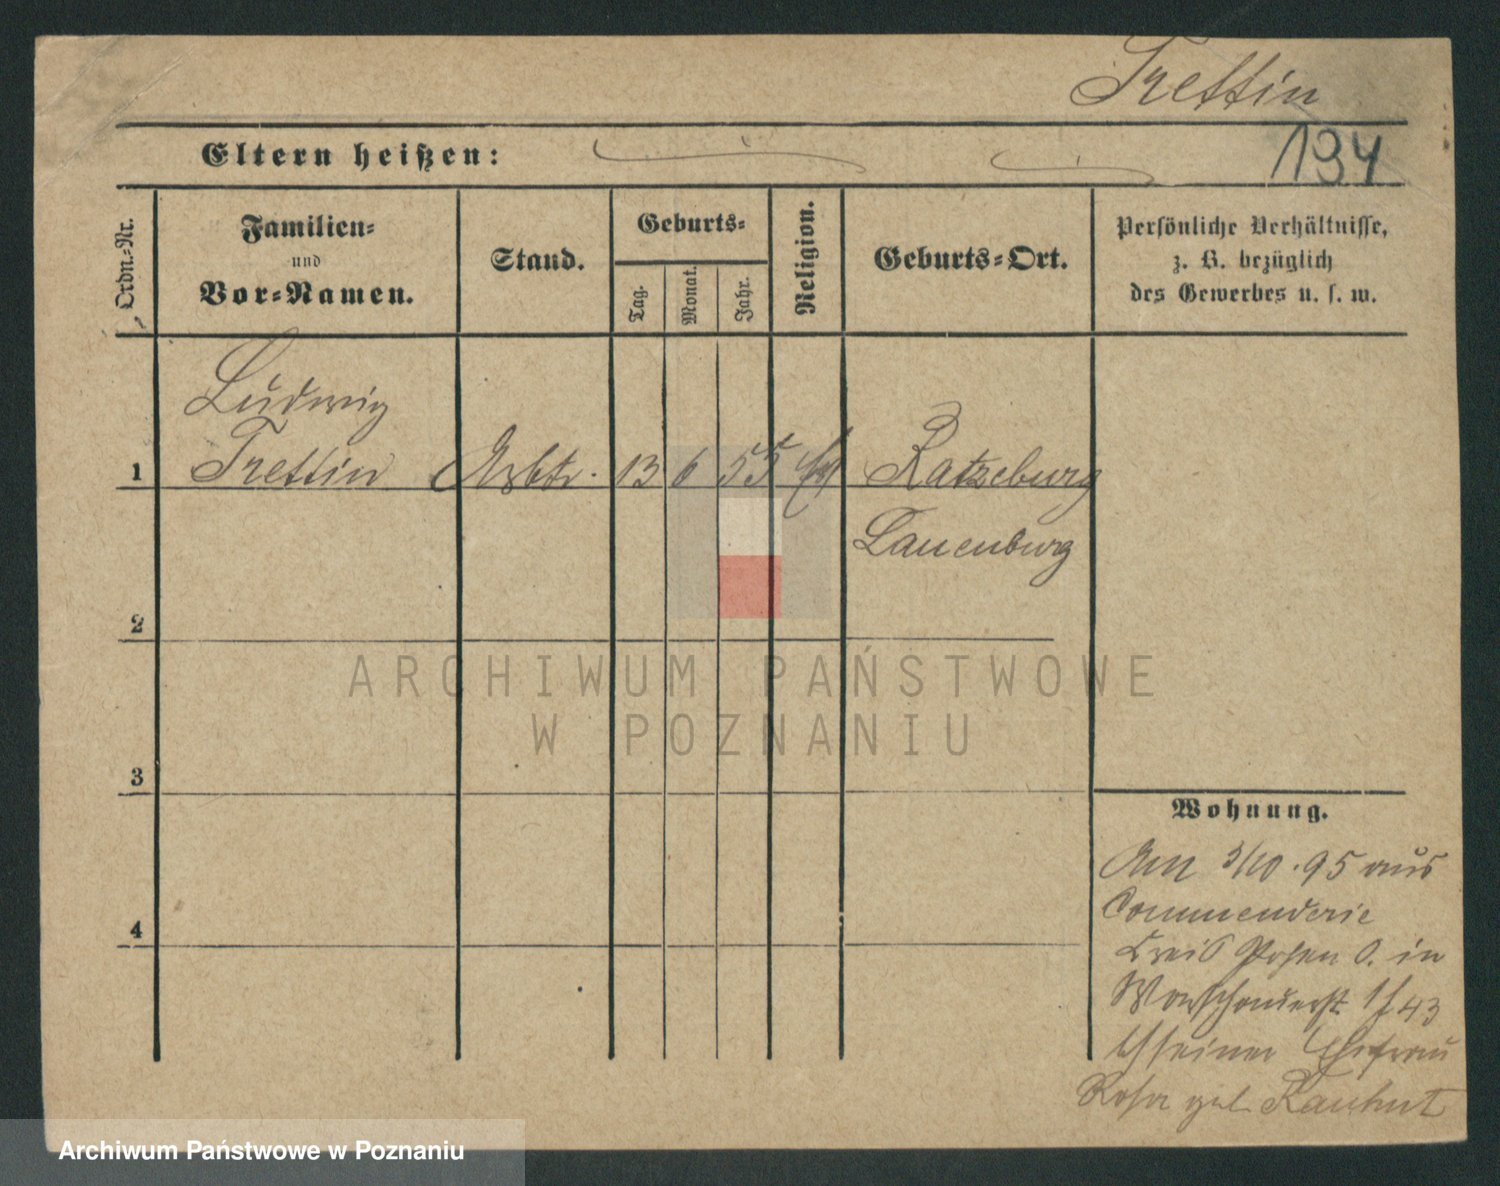 Trettin
194
Eltern heißen:
Ordn.-Nr.
Familien-
und
Vor-Namen.
Stand.
Geburts-
Tag.
Monat.
Jahr.
Religion.
Geburts-Ort.
Persönliche Verhältnisse,
z. B. bezüglich
des Gewerbes u. s. w.
Ludwig
1 Trettin Arbtr. 13 6 55 Ev Ratzeburg
Lauenburg
2
3
4
ARCHIWUM PAŃSTWOWE
W POZNANIU
Wohnung.
Am 3/10. 95 aus
Commenderie
Kreis Posen O. in
Warschauerst 43
seiner Ehefrau
Rosa Kauhut
Archiwum Państwowe w Poznaniu